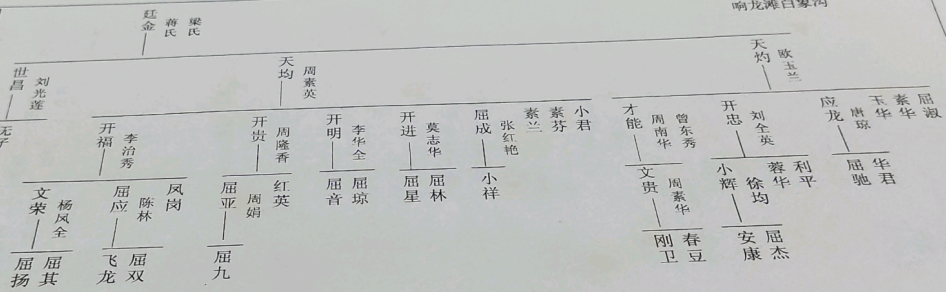 响龙滩白象沟
廷金
蒋氏
梁氏
世昌
刘光莲
天均
周素英
天灼
欧玉兰
无子
开福
李治秀
开贵
周隆香
开明
李华全
开进
莫志华
屈成
张红艳
素兰
素芬
小君
才能
周南华
曾东秀
开忠
刘全英
应龙
唐琼
玉华
素华
屈淑
文荣
杨凤全
屈应
陈林
凤岗
屈亚
周娟
红英
屈音
屈琼
屈星
屈林
小祥
文贵
周素华
小辉
徐均
蓉华
利平
屈驰
华君
屈扬
屈其
飞龙
屈双
屈九
刚卫
春豆
安康
屈杰